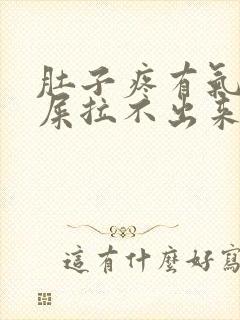 肚子疼有氣
屎拉不出來
這有什麼好寫